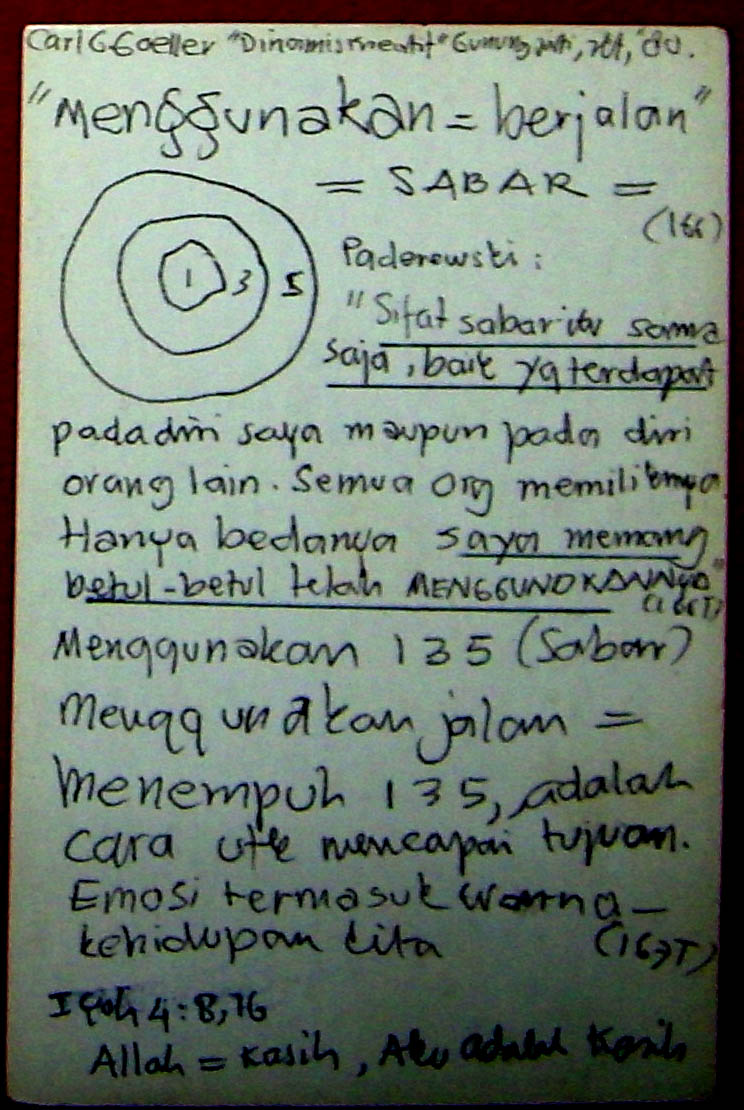 Carl G. Goeller "Dinamis Kreatif" Gunung Jati, Jkt, '80.
"Menggunakan = berjalan"
= SABAR =
(166)
1 3 5
Paderewski :
"Sifat sabar itu sama
saja, baik yg terdapat
pada diri saya maupun pada diri
orang lain. Semua org memilikinya
Hanya bedanya saya memang
betul-betul telah MENGGUNAKANNya"
(166T)
Menggunakan 135 (Sabar)
Menggunakan jalan =
Menempuh 135, adalah
cara utk mencapai tujuan.
Emosi termasuk warna-
kehidupan kita (167T)
I Yoh 4:8,16
Allah = Kasih, Aku adalah Kasih